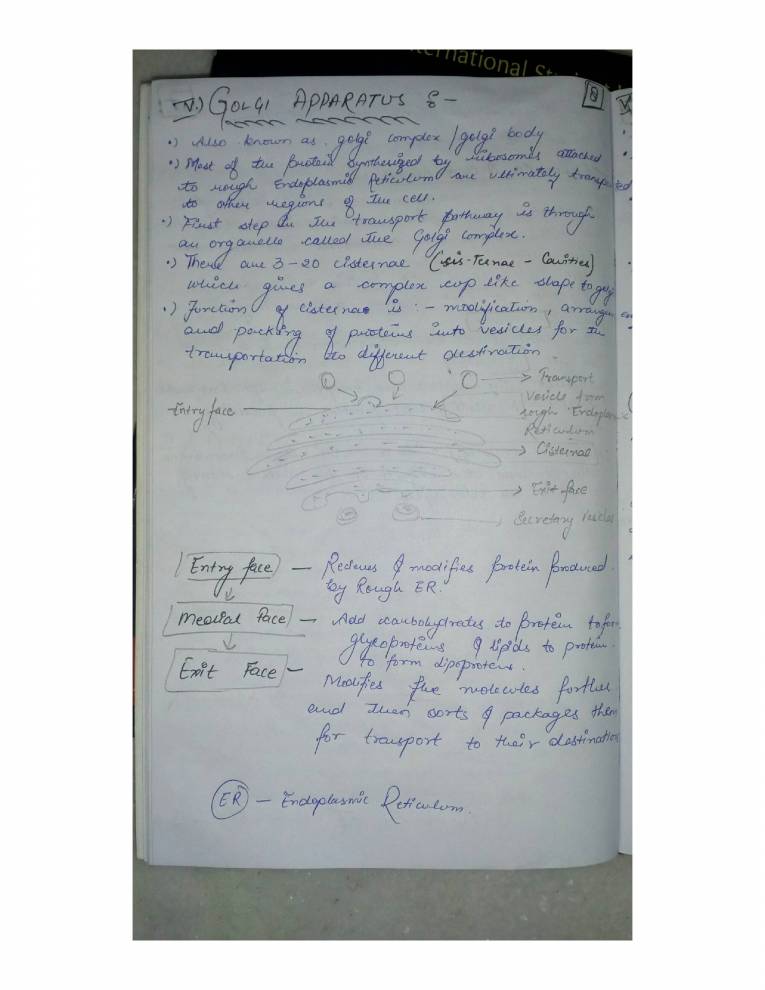 ternational St
V.) GOLGI APPARATUS :-
8
•) Also known as golgi complex / golgi body
•) Most of the protein synthesized by ribosomes attached
to rough Endoplasmic Reticulum are ultimately transported
to other regions of the cell.
•) First step in the transport pathway is through
an organelle called the Golgi complex.
•) There are 3-20 cisternae (sis-Ternae - Cavities)
which gives a complex cup like shape to golgi
•) Function of cisternae is :- modification, arrangem
and packing of proteins into vesicles for the
transportation to different destination.
Transport
Vesicle from
rough Endoplasmic
Reticulum
Entry face
Cisternae
Exit face
Secretary Vesicles
Entry face — Recieves & modifies protein produced
by Rough ER.
Medial Face — Add carbohydrates to protein to form
glycoproteins & lipids to protein
to form lipoproteins.
Exit Face — Modifies the molecules further
and then sorts & packages them
for transport to their destination
ER — Endoplasmic Reticulum.